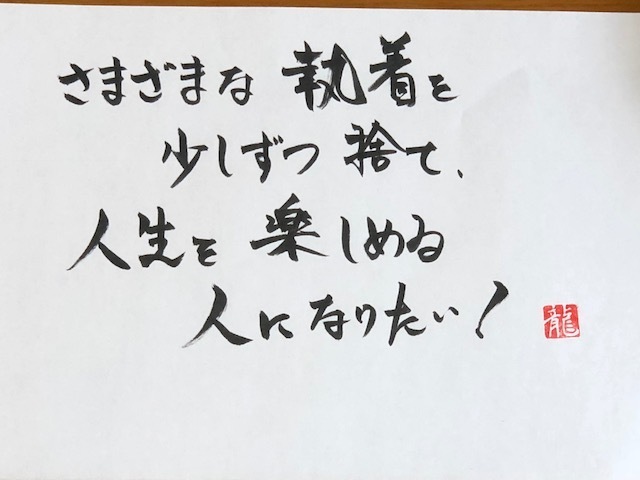 さまざまな執着を
少しずつ捨て、
人生を楽しめる
人になりたい!
龍